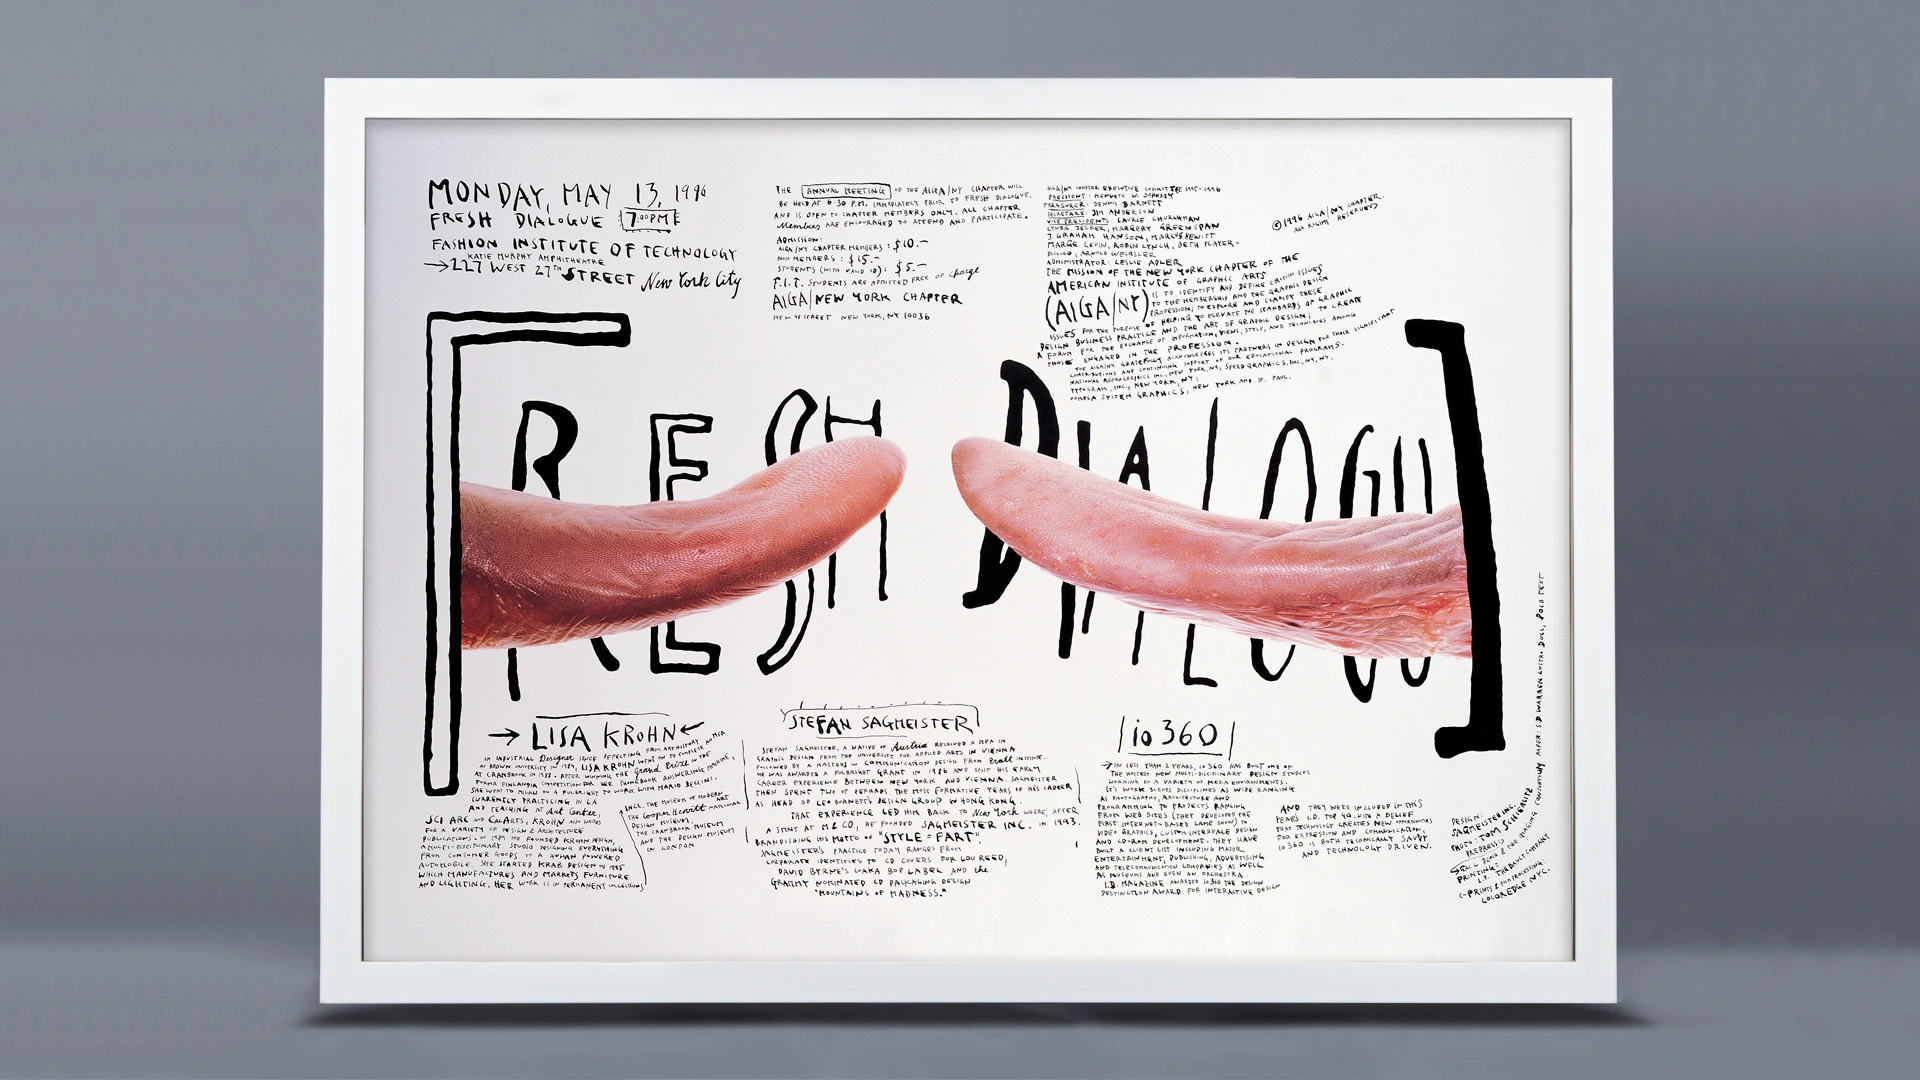 MONDAY, MAY 13, 1996
FRESH DIALOGUE 7:00PM
FASHION INSTITUTE OF TECHNOLOGY
KATIE MURPHY AMPHITHEATRE
→227 WEST 27TH STREET New York City
THE ANNUAL MEETING OF THE AIGA/NY CHAPTER WILL
BE HELD AT 6 30 P.M. IMMEDIATELY PRIOR TO FRESH DIALOGUE.
AND IS OPEN TO CHAPTER MEMBERS ONLY. ALL CHAPTER
Members ARE ENCOURAGED TO ATTEND AND PARTICIPATE.
ADMISSION:
AIGA/NY CHAPTER MEMBERS: $10.-
NON MEMBERS: $15.-
STUDENTS (WITH VALID ID): $5.-
F.I.T. STUDENTS ARE ADMITTED FREE OF Charge
AIGA/NEW YORK CHAPTER
STREET NEW YORK, NY 10036
AIGA/NY CHAPTER EXECUTIVE COMMITTEE 1995-1996
PRESIDENT: KENNETH W. DOHERTY
TREASURER: DENNIS BARNETT
SECRETARY: JIM ANDERSON
VICE PRESIDENTS: LAURIE CHURCHMAN
LYNDA DECKER, MARGERY GREENSPAN
J. GRAHAM HANSON, MARCUS HEWITT
MARGE LEVIN, ROBIN LYNCH, BETH PLAYER-
DICCLO, ARNOLD WECHSLER
ADMINISTRATOR: LESLIE ADLER
©1996 AIGA/NY CHAPTER.
ALL RIGHTS RESERVED
THE MISSION OF THE NEW YORK CHAPTER OF THE
AMERICAN INSTITUTE OF GRAPHIC ARTS
(AIGA/NY) IS TO IDENTIFY AND DEFINE CRITICAL ISSUES
TO THE MEMBERSHIP AND THE GRAPHIC DESIGN
PROFESSION; TO EXPLORE AND CLARIFY THESE
ISSUES FOR THE PURPOSE OF HELPING TO ELEVATE THE STANDARDS OF GRAPHIC
DESIGN BUSINESS PRACTICE AND THE ART OF GRAPHIC DESIGN; TO CREATE
A FORUM FOR THE EXCHANGE OF INFORMATION, VIEWS, STYLE, AND TECHNIQUES AMONG
THOSE ENGAGED IN THE PROFESSION.
THE AIGA/NY GRATEFULLY ACKNOWLEDGES ITS PARTNERS IN DESIGN FOR THEIR SIGNIFICANT
CONTRIBUTIONS AND CONTINUING SUPPORT OF OUR EDUCATIONAL PROGRAMS.
NATIONAL REPROGRAPHICS INC., NEW YORK, NY; SPEED GRAPHICS, INC, NY, NY;
TYPOGRAM, INC., NEW YORK, NY;
SYSTEM GRAPHICS; NEW YORK AND ST. PAUL.
[RESH DIALOGU]
→ LISA KROHN ←
AN INDUSTRIAL Designer SINCE DEFECTING FROM ART HISTORY
AT BROWN UNIVERSITY IN 1984, LISA KROHN WENT ON TO COMPLETE AN MFA
AT CRANBROOK IN 1988. AFTER WINNING THE Grand Prize IN THE
FORMA FINLANDIA COMPETITION FOR HER PHONEBOOK ANSWERING MACHINE,
SHE WENT TO MILAN ON A FULBRIGHT TO WORK WITH MARIO BELLINI.
CURRENTLY PRACTICING IN LA
AND TEACHING AT Art Center,
SCI ARC AND CALARTS, KROHN ALSO WRITES
FOR A VARIETY OF DESIGN & ARCHITECTURE
PUBLICATIONS. IN 1989 SHE FOUNDED KROHN DESIGN,
A MULTI-DISCIPLINARY STUDIO DESIGNING EVERYTHING
FROM CONSUMER GOODS TO A HUMAN POWERED
AUTOMOBILE. SHE STARTED KRAB DESIGN IN 1995
WHICH MANUFACTURES AND MARKETS FURNITURE
AND LIGHTING. HER WORK IS IN PERMANENT COLLECTIONS
INCL. THE MUSEUM OF MODERN ART
THE Cooper-Hewitt NATIONAL
DESIGN MUSEUM,
THE CRANBROOK MUSEUM
AND THE DESIGN MUSEUM
IN LONDON
STEFAN SAGMEISTER
STEFAN SAGMEISTER, A NATIVE OF Austria RECEIVED A MFA IN
GRAPHIC DESIGN FROM THE UNIVERSITY FOR APPLIED ARTS IN VIENNA
FOLLOWED BY A MASTERS IN COMMUNICATION DESIGN FROM Pratt INSTITUTE.
HE WAS AWARDED A FULBRIGHT GRANT IN 1986 AND SPLIT HIS EARLY
CAREER EXPERIENCE BETWEEN NEW YORK AND VIENNA. SAGMEISTER
THEN SPENT TWO OF PERHAPS THE MOST FORMATIVE YEARS OF HIS CAREER
AS HEAD OF LEO BURNETT'S DESIGN GROUP IN HONG KONG.
THAT EXPERIENCE LED HIM BACK TO New York WHERE, AFTER
A STINT AT M&CO., HE FOUNDED SAGMEISTER INC. IN 1993.
BRANDISHING HIS MOTTO OF "STYLE=FART",
SAGMEISTER'S PRACTICE TODAY RANGES FROM
CORPORATE IDENTITIES TO CD COVERS FOR LOU REED,
DAVID BYRNE'S LUAKA BOP LABEL AND the
GRAMMY NOMINATED CD PACKAGING DESIGN
"MOUNTAINS OF MADNESS."
/io 360/
→ IN LESS THAN 2 YEARS, io 360 HAS BUILT ONE OF
THE HOTTEST NEW MULTI-DISCIPLINARY DESIGN STUDIOS
WORKING IN A VARIETY OF MEDIA ENVIRONMENTS.
IT'S WORK BLENDS DISCIPLINES AS WIDE RANGING
AS PHOTOGRAPHY, ARCHITECTURE AND
PROGRAMMING TO PROJECTS RANGING
FROM WEB SITES (THEY DEVELOPED THE
FIRST INTERNET-BASED GAME SHOW) TO
VIDEO GRAPHICS, CUSTOM INTERFACE DESIGN
AND CD-ROM DEVELOPMENT. THEY HAVE
BUILT A CLIENT LIST INCLUDING MAJOR
ENTERTAINMENT, PUBLISHING, ADVERTISING
AND TELECOMMUNICATION COMPANIES AS WELL
AS MUSEUMS AND EVEN AN ORCHESTRA.
I.D. MAGAZINE AWARDED io360 THE DESIGN
DISTINCTION AWARD FOR INTERACTIVE DESIGN
AND THEY WERE INCLUDED IN THIS
YEAR'S I.D. TOP 40. WITH A BELIEF
THAT TECHNOLOGY CREATES NEW OPPORTUNITIES
FOR EXPRESSION AND COMMUNICATION,
io 360 IS BOTH TECHNICALLY SAVVY
AND TECHNOLOGY DRIVEN.
DESIGN:
SAGMEISTER INC.
PHOTO: TOM SCHIERLITZ
PREPRESS:
PRINTING:
L.P. THEBAULT COMPANY
C-PRINTS & FILM PROCESSING:
COLOREDGE NYC.
PAPER: S.D. WARREN LUSTRO DULL, 80LB TEXT